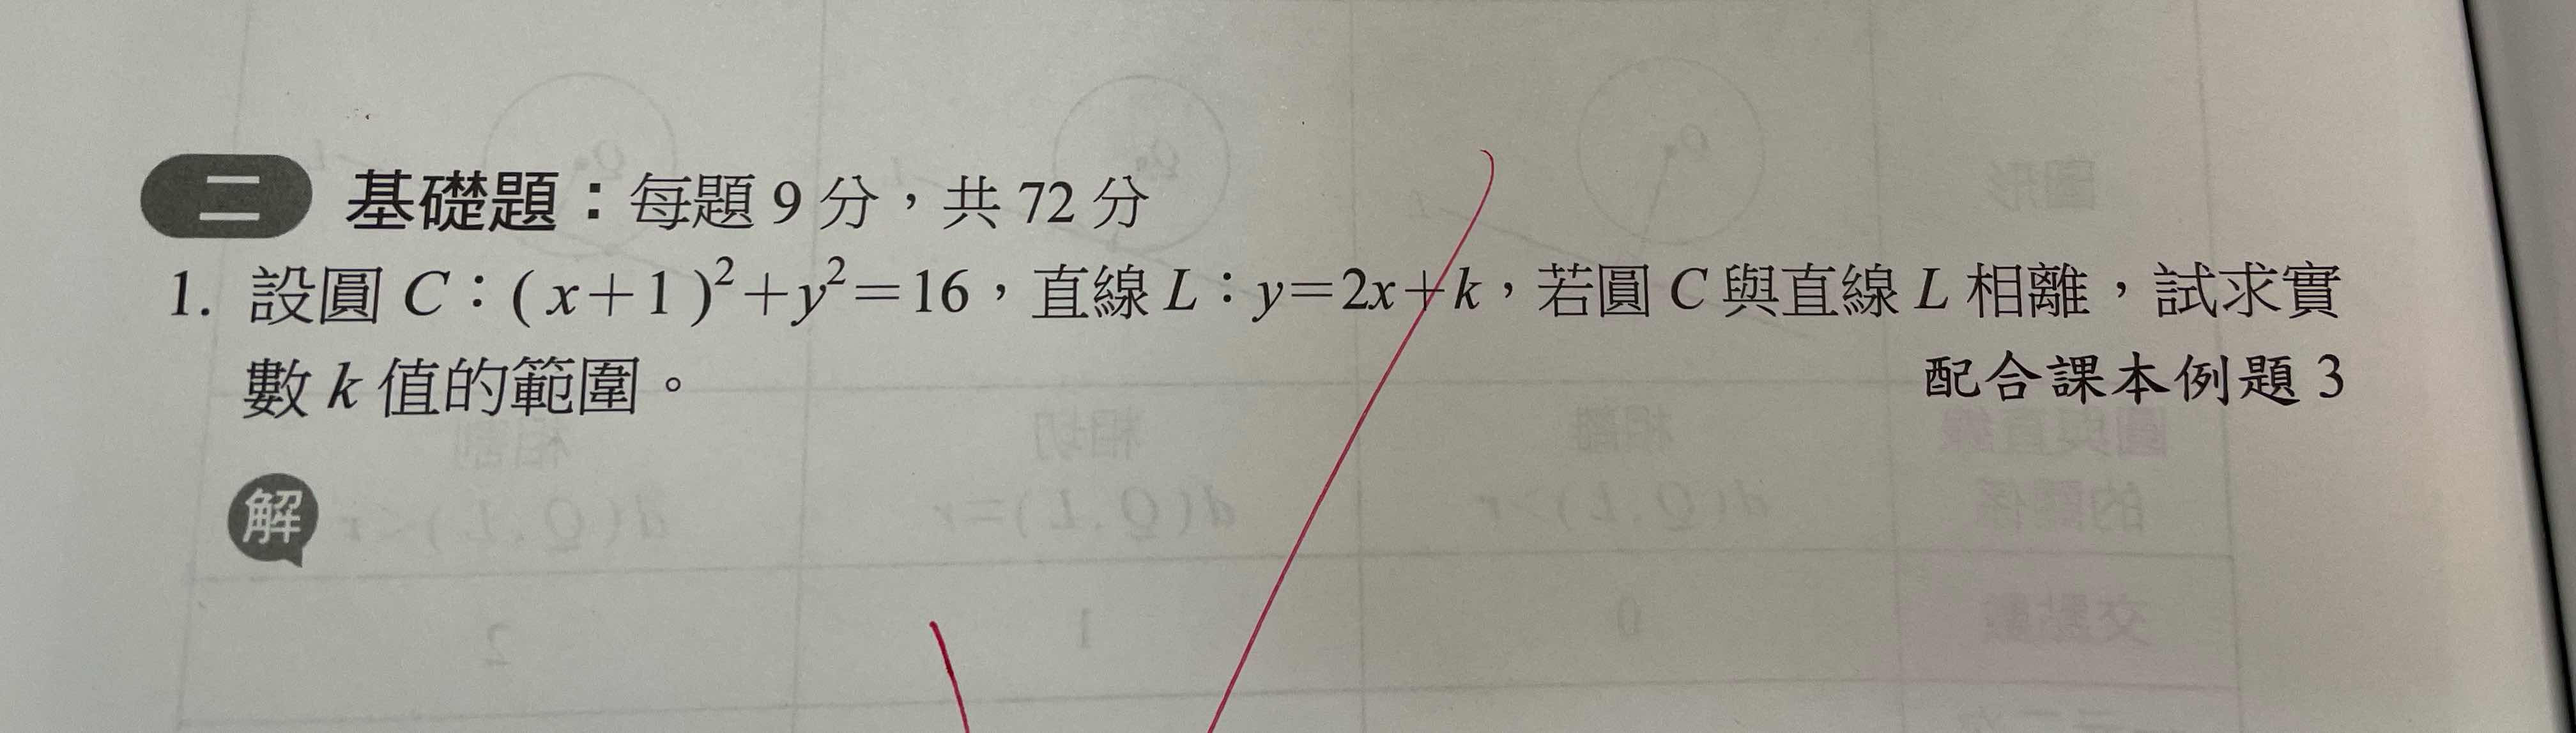 二 基礎題：每題 9 分，共 72 分
1. 設圓 C：( x＋1 )²＋y²＝16，直線 L：y＝2x＋k，若圓 C 與直線 L 相離，試求實
數 k 值的範圍。 配合課本例題 3
解